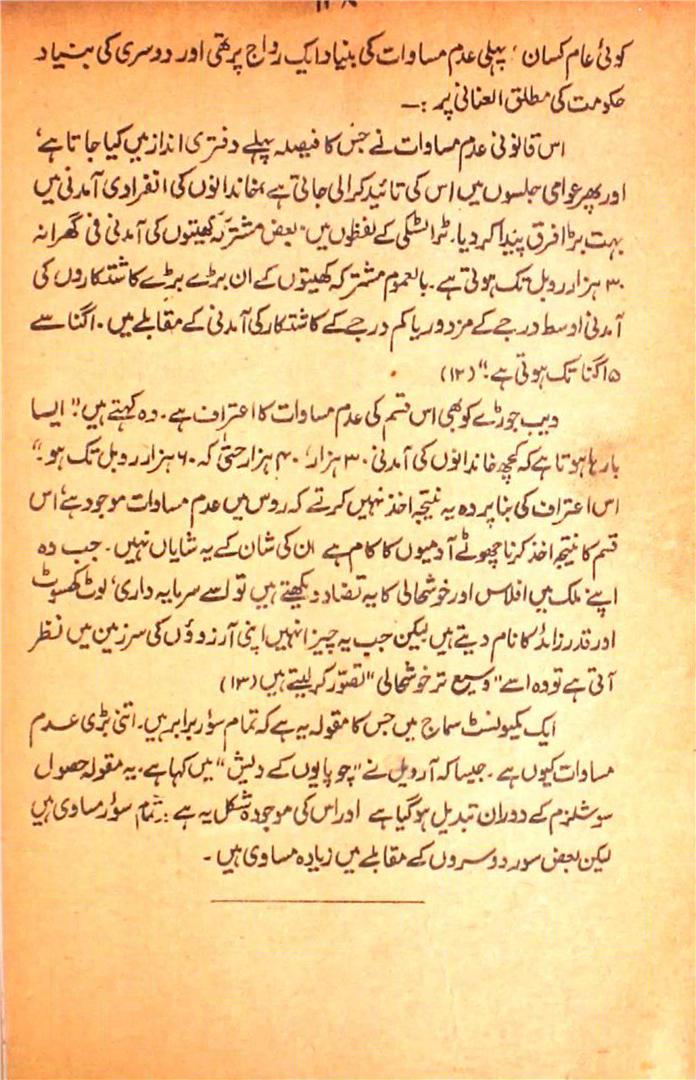 کوئی عام کسان، پہلی عدم مساوات کی بنیاد ایک رواج پر تھی اور دوسری کی بنیاد
حکومت کی مطلق العنانی پر :۔
اس قانونی عدم مساوات نے جس کا فیصلہ پہلے دفتری انداز میں کیا جاتا ہے،
اور پھر عوامی جلسوں میں اس کی تائید کرالی جاتی ہے، خاندانوں کی انفرادی آمدنی میں
بہت بڑا فرق پیدا کر دیا۔ ٹراٹسکی کے لفظوں میں "بعض مشترکہ کھیتوں کی آمدنی فی گھرانہ
۳۰ ہزار روبل تک ہوتی ہے۔ بالعموم مشترکہ کھیتوں کے ان بڑے بڑے کاشتکاروں کی
آمدنی اوسط درجے کے مزدور یا کم درجے کے کاشتکار کی آمدنی کے مقابلے میں ۱۰ گنا سے
۱۵ گنا تک ہوتی ہے۔" (۱۲)
ویب جوڑے کو بھی اس قسم کی عدم مساوات کا اعتراف ہے۔ وہ کہتے ہیں: "ایسا
بارہا ہوتا ہے کہ کچھ خاندانوں کی آمدنی ۳۰ ہزار، ۴۰ ہزار حتیٰ کہ ۶۰ ہزار روبل تک ہو۔"
اس اعتراف کی بنا پر وہ یہ نتیجہ اخذ نہیں کرتے کہ روس میں عدم مساوات موجود ہے، اس
قسم کا نتیجہ اخذ کرنا چھوٹے آدمیوں کا کام ہے ان کی شان کے یہ شایاں نہیں۔ جب وہ
اپنے ملک میں افلاس اور خوشحالی کا یہ تضاد دیکھتے ہیں تو اسے سرمایہ داری، لوٹ کھسوٹ
اور قدر زائد کا نام دیتے ہیں لیکن جب یہ چیز انہیں اپنی آرزوؤں کی سرزمین میں نظر
آتی ہے تو وہ اسے "وسیع تر خوشحالی" تصوّر کر لیتے ہیں (۱۳)
ایک کمیونسٹ سماج میں جس کا مقولہ یہ ہے کہ تمام سؤر برابر ہیں۔ اتنی بڑی عدم
مساوات کیوں ہے۔ جیسا کہ آرویل نے "چوپایوں کے دیش" میں کہا ہے۔ یہ مقولہ حصول
سوشلزم کے دوران تبدیل ہو گیا ہے اور اس کی موجودہ شکل یہ ہے :۔ تمام سؤر مساوی ہیں
لیکن بعض سور دوسروں کے مقابلے میں زیادہ مساوی ہیں۔